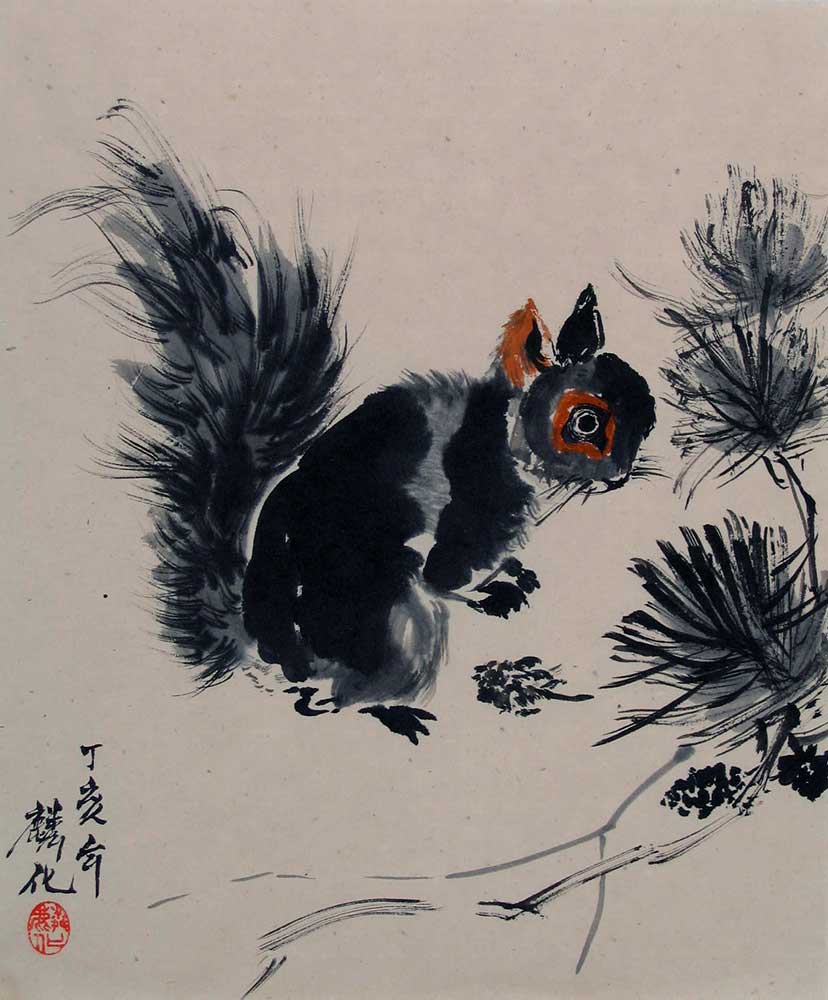 丁亥年
麟化